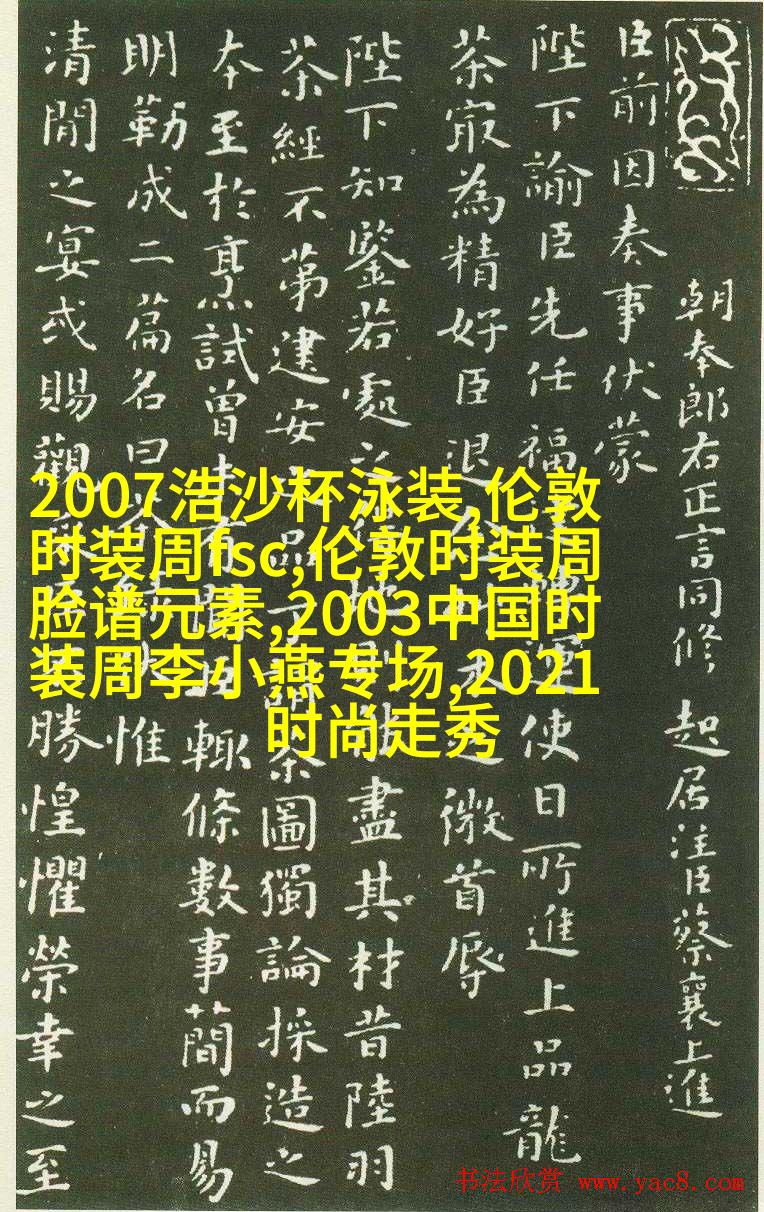 朝奉郎右正言同修起居注臣蔡襄上進
臣前因奏事伏蒙
陛下諭臣先任福運使日所進上品龍
茶寂為精好臣退微首辱
陛下知鑒若處盡其材昔陸羽
茶經不第建安品茶圖獨論採造之
本至於烹試曾未有輒條數事簡而易
明勒成二篇名曰惟
清閒之宴或賜觀勝惶懼榮幸之至
2007浩沙杯泳装,伦敦
时装周fsc,伦敦时装周
脸谱元素,2003中国时
装周李小燕专场,2021
时尚走秀
书法欣赏 www.yac8.com